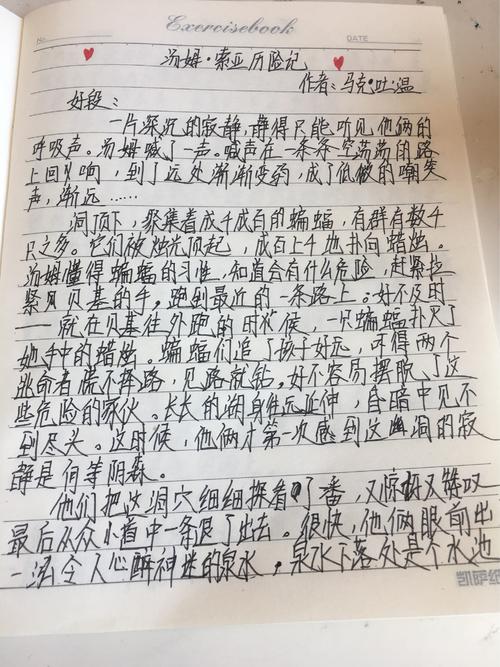 Exercisebook
No.
DATE
汤姆·索亚历险记
作者:马克·吐·温
好段:
一片深沉的寂静,静得只能听见他俩的
呼吸声。汤姆喊了一声。喊声在一条条空荡荡的路
上回响,到了远处渐渐变弱,成了低微的嘲笑
声,渐远……
洞顶下,聚集着成千成百的蝙蝠,有群有数千
只之多。它们被烛光惊起,成百上千地扑向蜡烛。
汤姆懂得蝙蝠的习性,知道会有什么危险,赶紧拉
紧贝贝基的手,跑到最近的一条路上。好不及时
——就在贝基往外跑的时候,一只蝙蝠扑灭了
她手中的蜡烛。蝙蝠们追了孩子好远,吓得两个
逃命者慌不择路,见路就钻。好不容易摆脱了这
些危险的家伙。长长的湖身往远延伸,昏暗中见不
到尽头。这时候,他俩才第一次感到这幽洞的寂
静是何等阴森。
他们把这洞穴细细探看了番,又惊讶又赞叹
最后从众小道中一条退了出去。很快,他俩眼前出
一泓令人心醉神迷的泉水,泉水下落处是个水池
凯萨纸